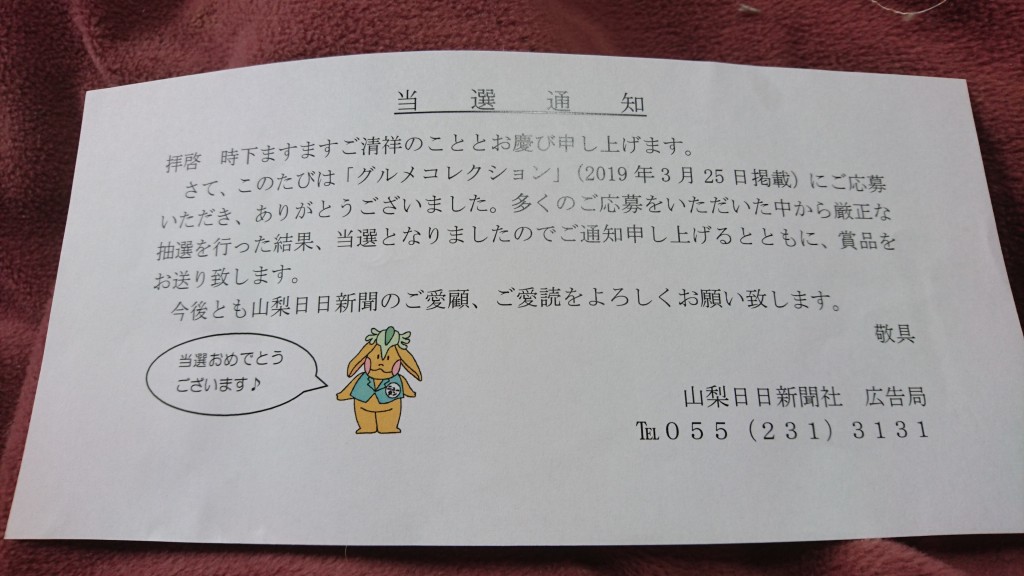 当選通知
拝啓　時下ますますご清祥のこととお慶び申し上げます。
さて、このたびは「グルメコレクション」（2019年3月25日掲載）にご応募
いただき、ありがとうございました。多くのご応募をいただいた中から厳正な
抽選を行った結果、当選となりましたのでご通知申し上げるとともに、賞品を
お送り致します。
今後とも山梨日日新聞のご愛顧、ご愛読をよろしくお願い致します。
敬具
当選おめでとう
ございます♪
山梨日日新聞社　広告局
℡０５５（２３１）３１３１